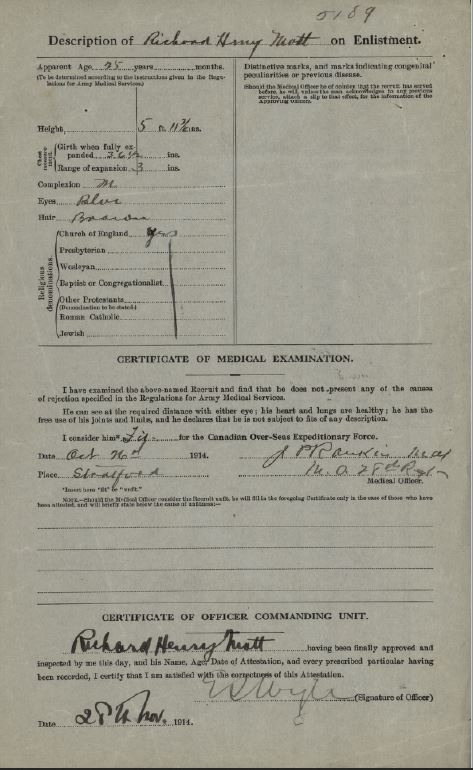 5189
Description of Richard Henry Mott on Enlistment.
Apparent Age 25 years months.
(To be determined according to the instructions given in the Regulations for Army Medical Services.)
Height 5 ft. 11 ins.
Chest measurement.
Girth when fully expanded 36½ ins.
Range of expansion 3 ins.
Complexion M
Eyes Blue
Hair Brown
Religious denominations.
Church of England yes
Presbyterian
Wesleyan
Baptist or Congregationalist
Other Protestants
(Denomination to be stated.)
Roman Catholic
Jewish
Distinctive marks, and marks indicating congenital
peculiarities or previous disease.
(Should the Medical Officer be of opinion that the recruit has served
before, he will, unless the man acknowledges to any previous
service, attach a slip to that effect, for the information of the
Approving Officer.)
CERTIFICATE OF MEDICAL EXAMINATION.
I have examined the above-named Recruit and find that he does not present any of the causes
of rejection specified in the Regulations for Army Medical Services.
He can see at the required distance with either eye; his heart and lungs are healthy; he has the
free use of his joints and limbs, and he declares that he is not subject to fits of any description.
I consider him* Fit for the Canadian Over-Seas Expeditionary Force.
Date Oct 26th 1914.
J P Rankin
Place Stratford
M.O. 28th Regt
Medical Officer.
*Insert here "fit" or "unfit."
NOTE.—Should the Medical Officer consider the Recruit unfit, he will fill in the foregoing Certificate only in the case of those who have
been attested, and will briefly state below the cause of unfitness:—
CERTIFICATE OF OFFICER COMMANDING UNIT.
Richard Henry Mott having been finally approved and
inspected by me this day, and his Name, Age, Date of Attestation, and every prescribed particular having
been recorded, I certify that I am satisfied with the correctness of this Attestation.
(Signature of Officer)
Date 28th Nov. 1914.